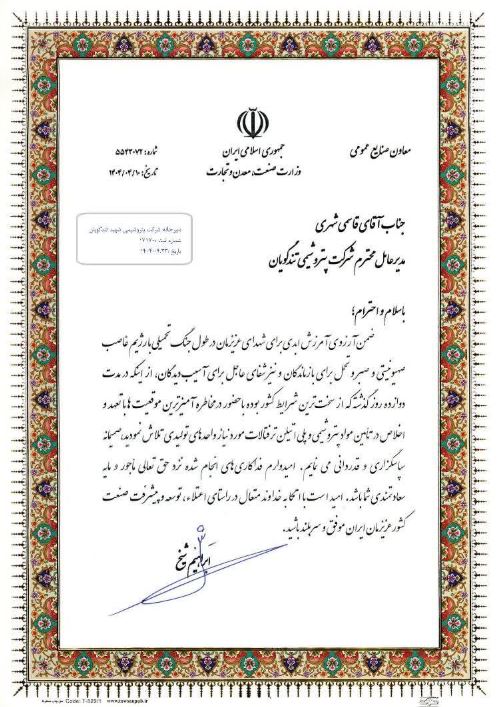 معاون صنایع عمومی
جمهوری اسلامی ایران
وزارت صنعت، معدن و تجارت
شماره: ۵۵۲۲۰۷۲
تاریخ: ۱۴۰۴/۰۴/۱۰
دبیرخانه شرکت پتروشیمی شهید تندگویان
شماره ثبت:
تاریخ:
جناب آقای قاسمی شهری
مدیرعامل محترم شرکت پتروشیمی تندگویان
باسلام و احترام؛
ضمن آرزوی آمرزش ابدی برای شهدای عزیزمان در طول جنگ تحمیلی با رژیم غاصب
صهیونیستی و صبر و تحمل برای بازماندگان و نیز شفای عاجل برای آسیب دیدگان، از اینکه در مدت
دوازده روز گذشته که از سخت‌ترین شرایط کشور بوده با حضور در مخاطره آمیزترین موقعیت ها با تعهد و
اخلاص در تأمین مواد پتروشیمی و پلی اتیلن ترفتالات مورد نیاز واحدهای تولیدی تلاش نمودید، صمیمانه
سپاسگزاری و قدردانی می نمایم. امیدوارم فداکاری‌های انجام شده نزد حق تعالی ماجور و مایه
سعادتمندی شما باشد. امید است با اتکا به خداوند متعال در راستای اعتلاء، توسعه و پیشرفت صنعت
کشور عزیزمان ایران موفق و سربلند باشید.
ابراهیم شیخ